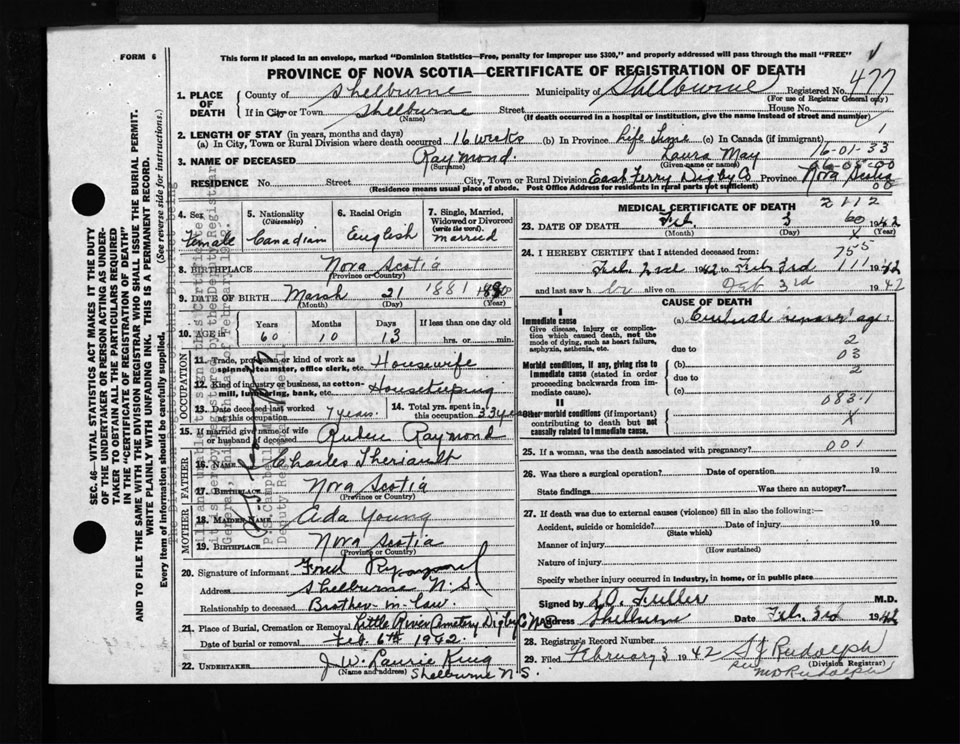 FORM 6
This form if placed in an envelope, marked "Dominion Statistics—Free, penalty for improper use $300," and properly addressed will pass through the mail "FREE"
PROVINCE OF NOVA SCOTIA—CERTIFICATE OF REGISTRATION OF DEATH
1. PLACE OF DEATH County of Shelburne Municipality of Shelburne Registered No. 477
(For use of Registrar General only)
If in City or Town Shelburne Street House No.
(Name) (If death occurred in a hospital or institution, give the name instead of street and number)
2. LENGTH OF STAY (in years, months and days)
(a) In City, Town or Rural Division where death occurred 16 weeks (b) In Province Life Time (c) In Canada (if immigrant) 1
16-01-33
3. NAME OF DECEASED Raymond. Laura May
(Surname) (Given name or names)
06-08-00
RESIDENCE No. Street City, Town or Rural Division East Ferry Digby Co Province Nova Scotia
(Residence means usual place of abode. Post Office Address for residents in rural parts not sufficient) 00
4. Sex Female
5. Nationality (Citizenship) Canadian
6. Racial Origin English
7. Single, Married, Widowed or Divorced (write the word) married
8. BIRTHPLACE Nova Scotia
(Province or Country)
9. DATE OF BIRTH Marsh 21 1881
(Month) (Day) (Year)
10. AGE in Years 60 Months 10 Days 13 If less than one day old
hrs. or min.
OCCUPATION
11. Trade, profession or kind of work as spinner, teamster, office clerk, etc. Housewife
12. Kind of industry or business, as cotton-mill, lumbering, bank, etc. Housekeeping
13. Date deceased last worked at this occupation 7 years.
14. Total yrs. spent in this occupation 33 years
15. If married give name of wife or husband of deceased Ruben Raymond
FATHER
16. NAME Charles Theriault
17. BIRTHPLACE Nova Scotia
(Province or Country)
MOTHER
18. MAIDEN NAME Ada Young
19. BIRTHPLACE Nova Scotia
(Province or Country)
20. Signature of informant Fred Raymond
Address Shelburne N.S.
Relationship to deceased Brother-in-law.
21. Place of Burial, Cremation or Removal Little River Cemetery Digby Co N.S.
Date of burial or removal Feb. 6th 1942.
22. UNDERTAKER J. W. Laurie King
(Name and address) Shelburne N.S.
MEDICAL CERTIFICATE OF DEATH
2112
23. DATE OF DEATH Feb. 3 1942
(Month) (Day) (Year)
60
24. I HEREBY CERTIFY that I attended deceased from:
755
Feb 2nd 1942 to Feb 3rd 1942
111
and last saw her alive on Feb 3rd 1942
CAUSE OF DEATH
I
Immediate cause (a)
Give disease, injury or complication which caused death, not the mode of dying, such as heart failure, asphyxia, asthenia, etc.
due to
2
03
Morbid conditions, if any, giving rise to immediate cause (stated in order proceeding backwards from immediate cause) (b)
2
due to
(c)
083.1
II
Other morbid conditions (if important) contributing to death but not causally related to immediate cause.
X
25. If a woman, was the death associated with pregnancy? 001
26. Was there a surgical operation? Date of operation 19
State findings Was there an autopsy?
27. If death was due to external causes (violence) fill in also the following:—
Accident, suicide or homicide? Date of injury 19
(State which)
Manner of injury
(How sustained)
Nature of injury
Specify whether injury occurred in industry, in home, or in public place
Signed by Fuller M.D.
Address Shelburne Date Feb. 3rd 1942
28. Registrar's Record Number
29. Filed February 3 1942 Rudolph
(Division Registrar)
per M D Rudolph
SEC. 46—VITAL STATISTICS ACT MAKES IT THE DUTY
OF THE UNDERTAKER OR PERSON ACTING AS UNDERTAKER
TO OBTAIN ALL THE PARTICULARS REQUIRED
IN THE "CERTIFICATE OF REGISTRATION OF DEATH"
AND TO FILE THE SAME WITH THE DIVISION REGISTRAR WHO SHALL ISSUE THE BURIAL PERMIT.
WRITE PLAINLY WITH UNFADING INK. THIS IS A PERMANENT RECORD.
Every item of information should be carefully supplied. (See reverse side for instructions.)